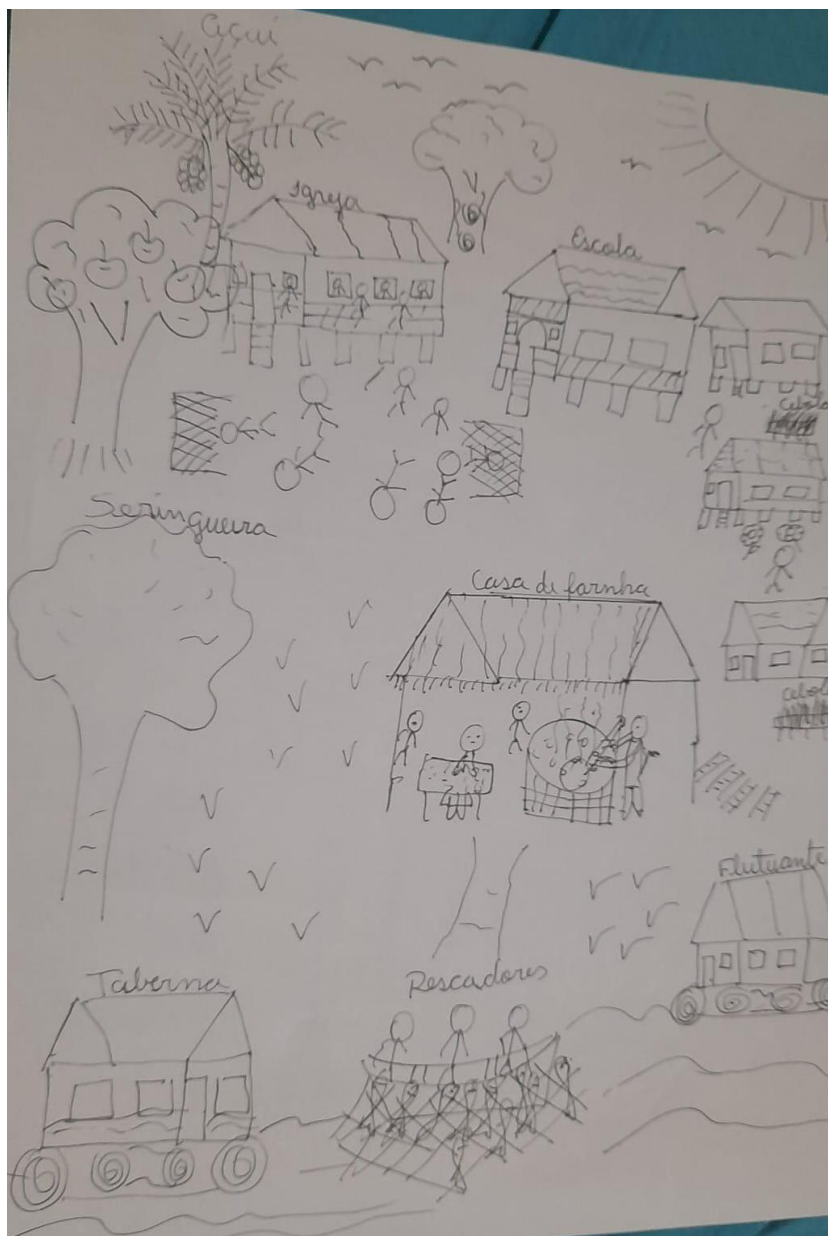 açaí
Igreja
Escola
Cebola
Seringueira
Casa de farinha
Cebola
Flutuante
Taberna
Pescadores